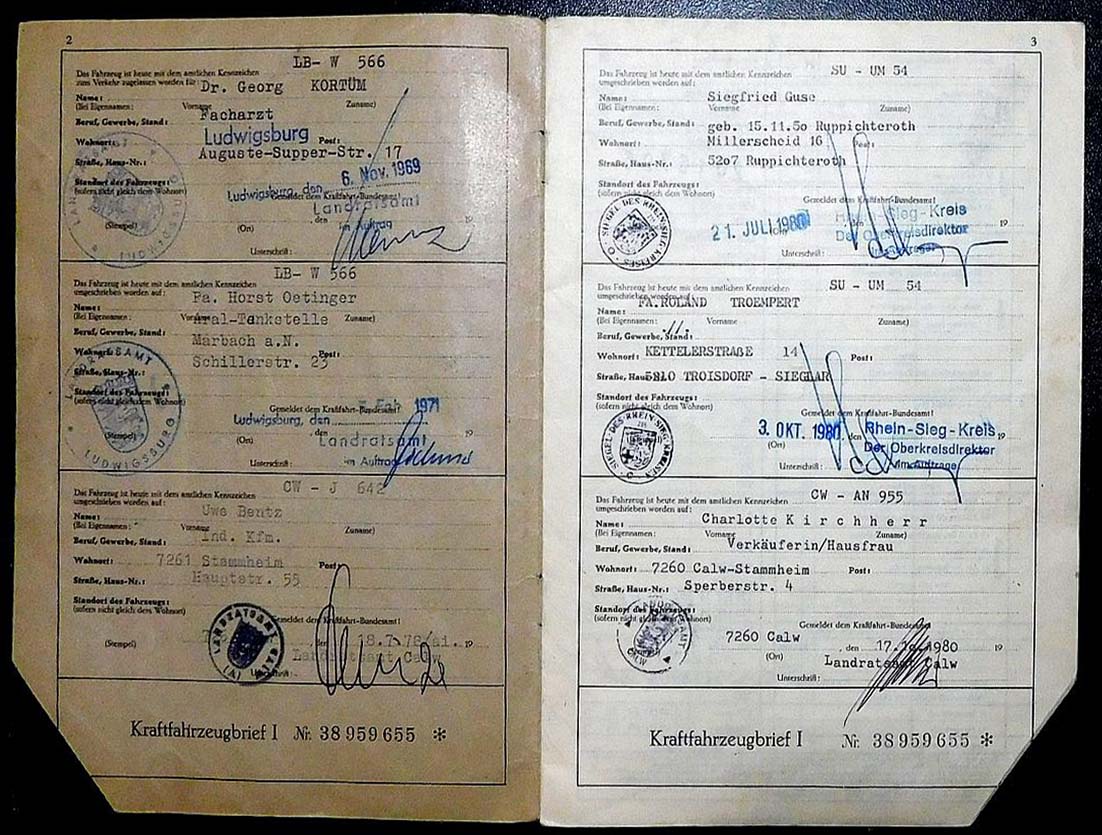 2
LB- W 566
Das Fahrzeug ist heute mit dem amtlichen Kennzeichen
zum Verkehr zugelassen worden für:
Dr. Georg KORTÜM
Name:
(Bei Eigennamen: Vorname Zuname)
Facharzt
Beruf, Gewerbe, Stand:
Ludwigsburg
Wohnort: Post:
Auguste-Supper-Str. 17
Straße, Haus-Nr.:
Standort des Fahrzeugs:
(sofern nicht gleich dem Wohnort)
6. Nov. 1969
Ludwigsburg, den
Gemeldet dem Kraftfahrt-Bundesamt!
Landratsamt
(Stempel) (Ort) , den 19
Im Auftrag
Unterschrift:
LB- W 566
Das Fahrzeug ist heute mit dem amtlichen Kennzeichen
umgeschrieben worden auf:
Fa. Horst Oetinger
Name:
(Bei Eigennamen: Vorname Zuname)
Aral-Tankstelle
Beruf, Gewerbe, Stand:
Marbach a.N.
Wohnort: Post:
Schillerstr. 23
Straße, Haus-Nr.:
LANDRATSAMT LUDWIGSBURG
Standort des Fahrzeugs:
(sofern nicht gleich dem Wohnort)
Feb. 1971
Gemeldet dem Kraftfahrt-Bundesamt!
Ludwigsburg, den
(Stempel) (Ort) , den
Landratsamt
Im Auftrag
Unterschrift:
CW - J 642
Das Fahrzeug ist heute mit dem amtlichen Kennzeichen
umgeschrieben worden auf:
Uwe Bentz
Name:
(Bei Eigennamen: Vorname Zuname)
Ind. Kfm.
Beruf, Gewerbe, Stand:
Wohnort: 7261 Stammheim Post:
Straße, Haus-Nr.: Hauptstr. 55
Standort des Fahrzeugs:
(sofern nicht gleich dem Wohnort)
Gemeldet dem Kraftfahrt-Bundesamt!
LANDRATSAMT CALW
(Stempel) den 19
Landratsamt Calw
Unterschrift:
Kraftfahrzeugbrief I Nr. 38 959 655 *
3
SU - UM 54
Das Fahrzeug ist heute mit dem amtlichen Kennzeichen
umgeschrieben worden auf:
Siegfried Guse
Name:
(Bei Eigennamen: Vorname Zuname)
Beruf, Gewerbe, Stand: geb. 15.11.50 Ruppichteroth
Wohnort: Millerscheid 16 Post:
Straße, Haus-Nr.: 5207 Ruppichteroth
Standort des Fahrzeugs:
(sofern nicht gleich dem Wohnort)
Gemeldet dem Kraftfahrt-Bundesamt!
SIEGEL DES RHEIN-SIEG-KREISES
Rhein-Sieg-Kreis
21. JULI 1980 19
Der Oberkreisdirektor
Im Auftrage
Unterschrift:
SU - UM 54
Das Fahrzeug ist heute mit dem amtlichen Kennzeichen
umgeschrieben worden auf:
FA.ROLAND TROEMPERT
Name:
(Bei Eigennamen: Vorname Zuname)
Beruf, Gewerbe, Stand:
Wohnort: KETTELERSTRAßE 14 Post:
Straße, Haus-Nr.: 5210 TROISDORF - SIEGLAR
Standort des Fahrzeugs:
(sofern nicht gleich dem Wohnort)
Gemeldet dem Kraftfahrt-Bundesamt!
SIEGEL DES RHEIN-SIEG-KREISES
3. OKT. 1980 , den Rhein-Sieg-Kreis 19
(Ort)
Der Oberkreisdirektor
Unterschrift: Im Auftrage
CW - AN 955
Das Fahrzeug ist heute mit dem amtlichen Kennzeichen
umgeschrieben worden auf:
Charlotte Kirchherr
Name:
(Bei Eigennamen: Vorname Zuname)
Beruf, Gewerbe, Stand: Verkäuferin/Hausfrau
Wohnort: 7260 Calw-Stammheim Post:
Straße, Haus-Nr.: Sperberstr. 4
Standort des Fahrzeugs:
(sofern nicht gleich dem Wohnort)
Gemeldet dem Kraftfahrt-Bundesamt!
7260 Calw , den 1980 19
(Ort)
Landratsamt Calw
Unterschrift:
Kraftfahrzeugbrief I Nr. 38 959 655 *